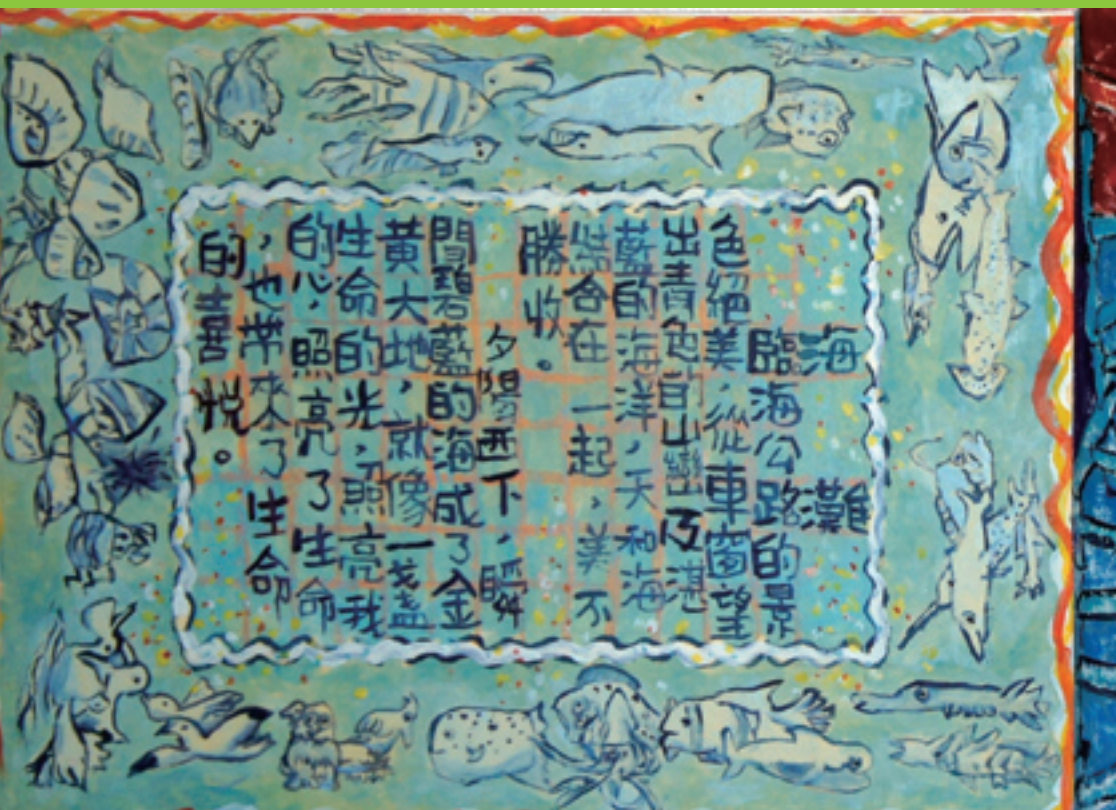 海灘
臨海公路的景
色絕美，從車窗望
出青色的山巒及湛
藍的海洋，天和海
結合在一起，美不
勝收。
夕陽西下，瞬
間碧藍的海成了金
黃大地，就像一盞
生命的光，照亮我
的心，照亮了生命
，也帶來了生命
的喜悅。